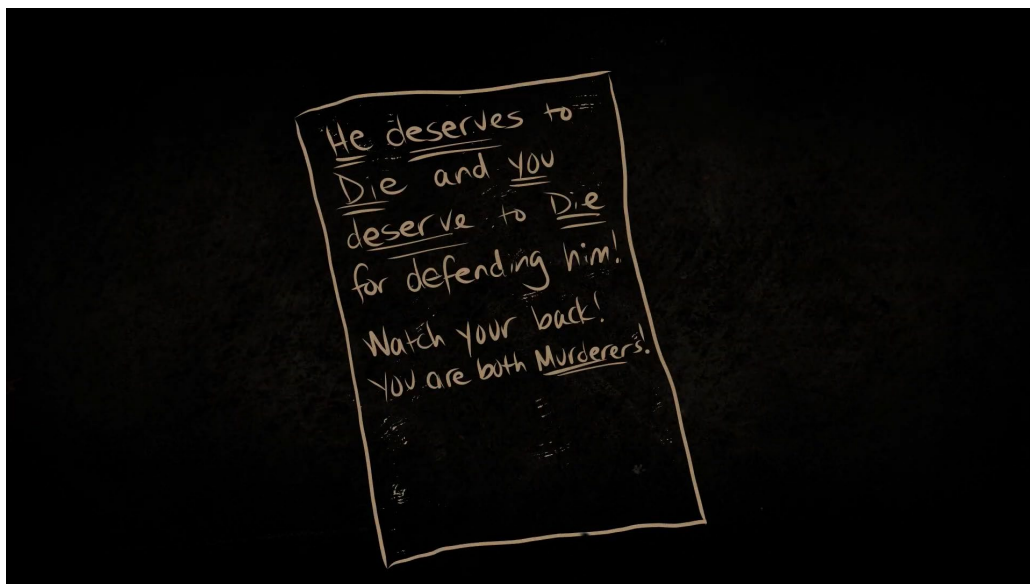 He deserves to
Die and you
deserve to Die
for defending him!
Watch your back!
You are both Murderers!